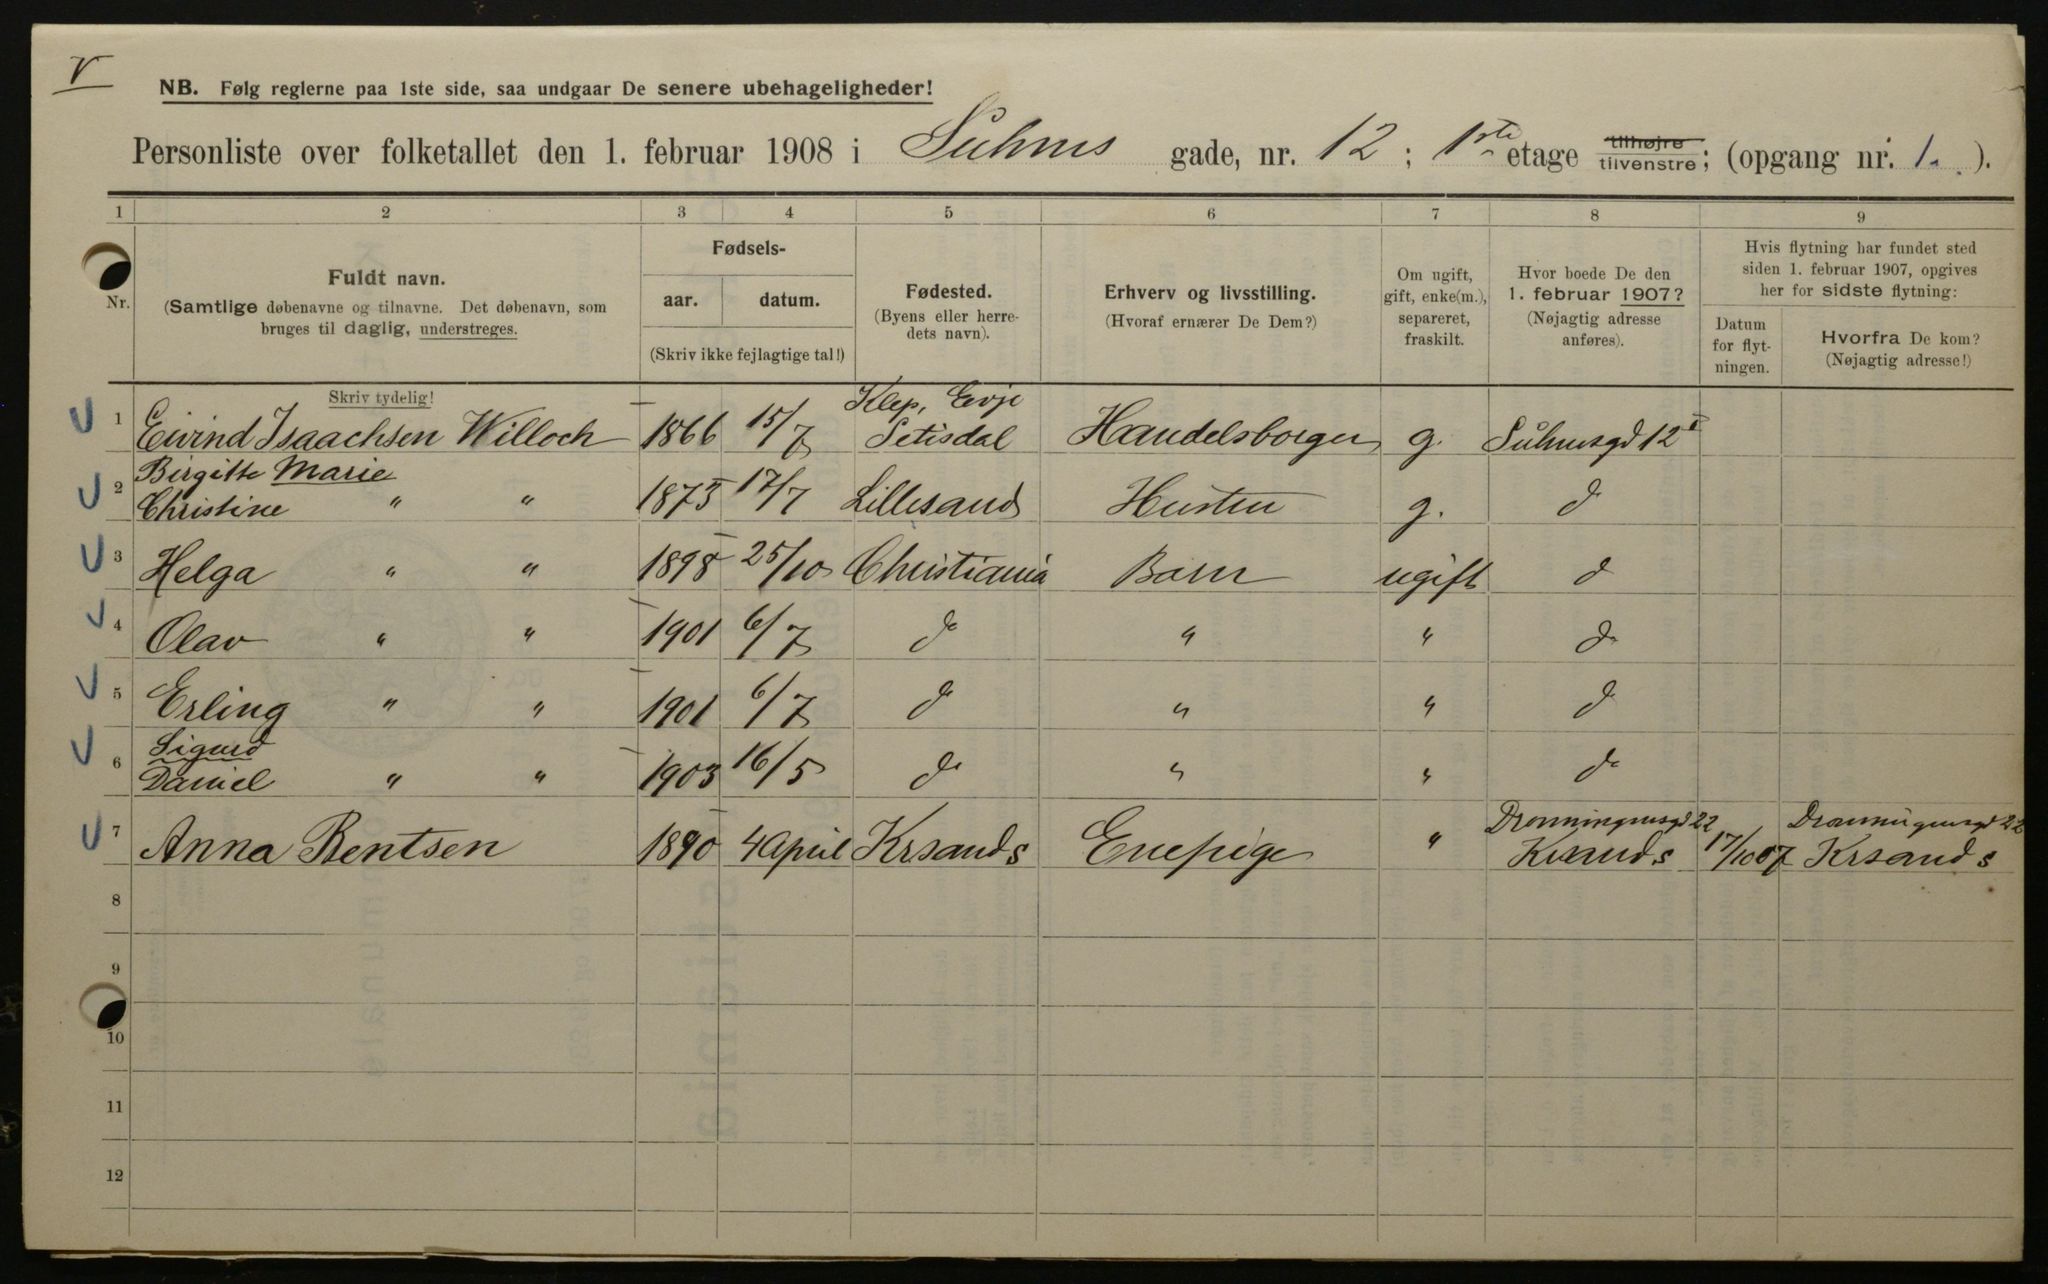 V
NB. Følg reglerne paa 1ste side, saa undgaar De senere ubehageligheder!
Personliste over folketallet den 1. februar 1908 i Suhms gade, nr. 12; 1ste etage tilhøjre tilvenstre; (opgang nr. 1.).
1 2 3 4 5 6 7 8 9
Nr.
Fuldt navn.
(Samtlige døbenavne og tilnavne. Det døbenavn, som
bruges til daglig, understreges.
Fødsels-
aar. datum.
(Skriv ikke fejlagtige tal!)
Fødested.
(Byens eller herre-
dets navn).
Erhverv og livsstilling.
(Hvoraf ernærer De Dem?)
Om ugift,
gift, enke(m.),
separeret,
fraskilt.
Hvor boede De den
1. februar 1907?
(Nøjagtig adresse
anføres).
Hvis flytning har fundet sted
siden 1. februar 1907, opgives
her for sidste flytning:
Datum
for flyt-
ningen.
Hvorfra De kom?
(Nøjagtig adresse!)
Skriv tydelig!
Klep, Evje
1 Eivind Isaachsen Willoch 1866 15/7 Setisdal Handelsborger g. Suhmsgd 12 I
Birgitte Marie
2 Christine " " 1875 17/7 Lillesand Hustru g. do
3 Helga " " 1898 25/10 Christiania Barn ugift do
4 Olav " " 1901 6/7 do " " do
5 Erling " " 1901 6/7 do " " do
Sigurd
6 Daniel " " 1903 16/5 do " " do
Dronningensgd 22 Dronningensgd 22
7 Anna Bentsen 1890 4 April Krsands Enepige " Krsands 17/10 07 Krsands
8
9
10
11
12